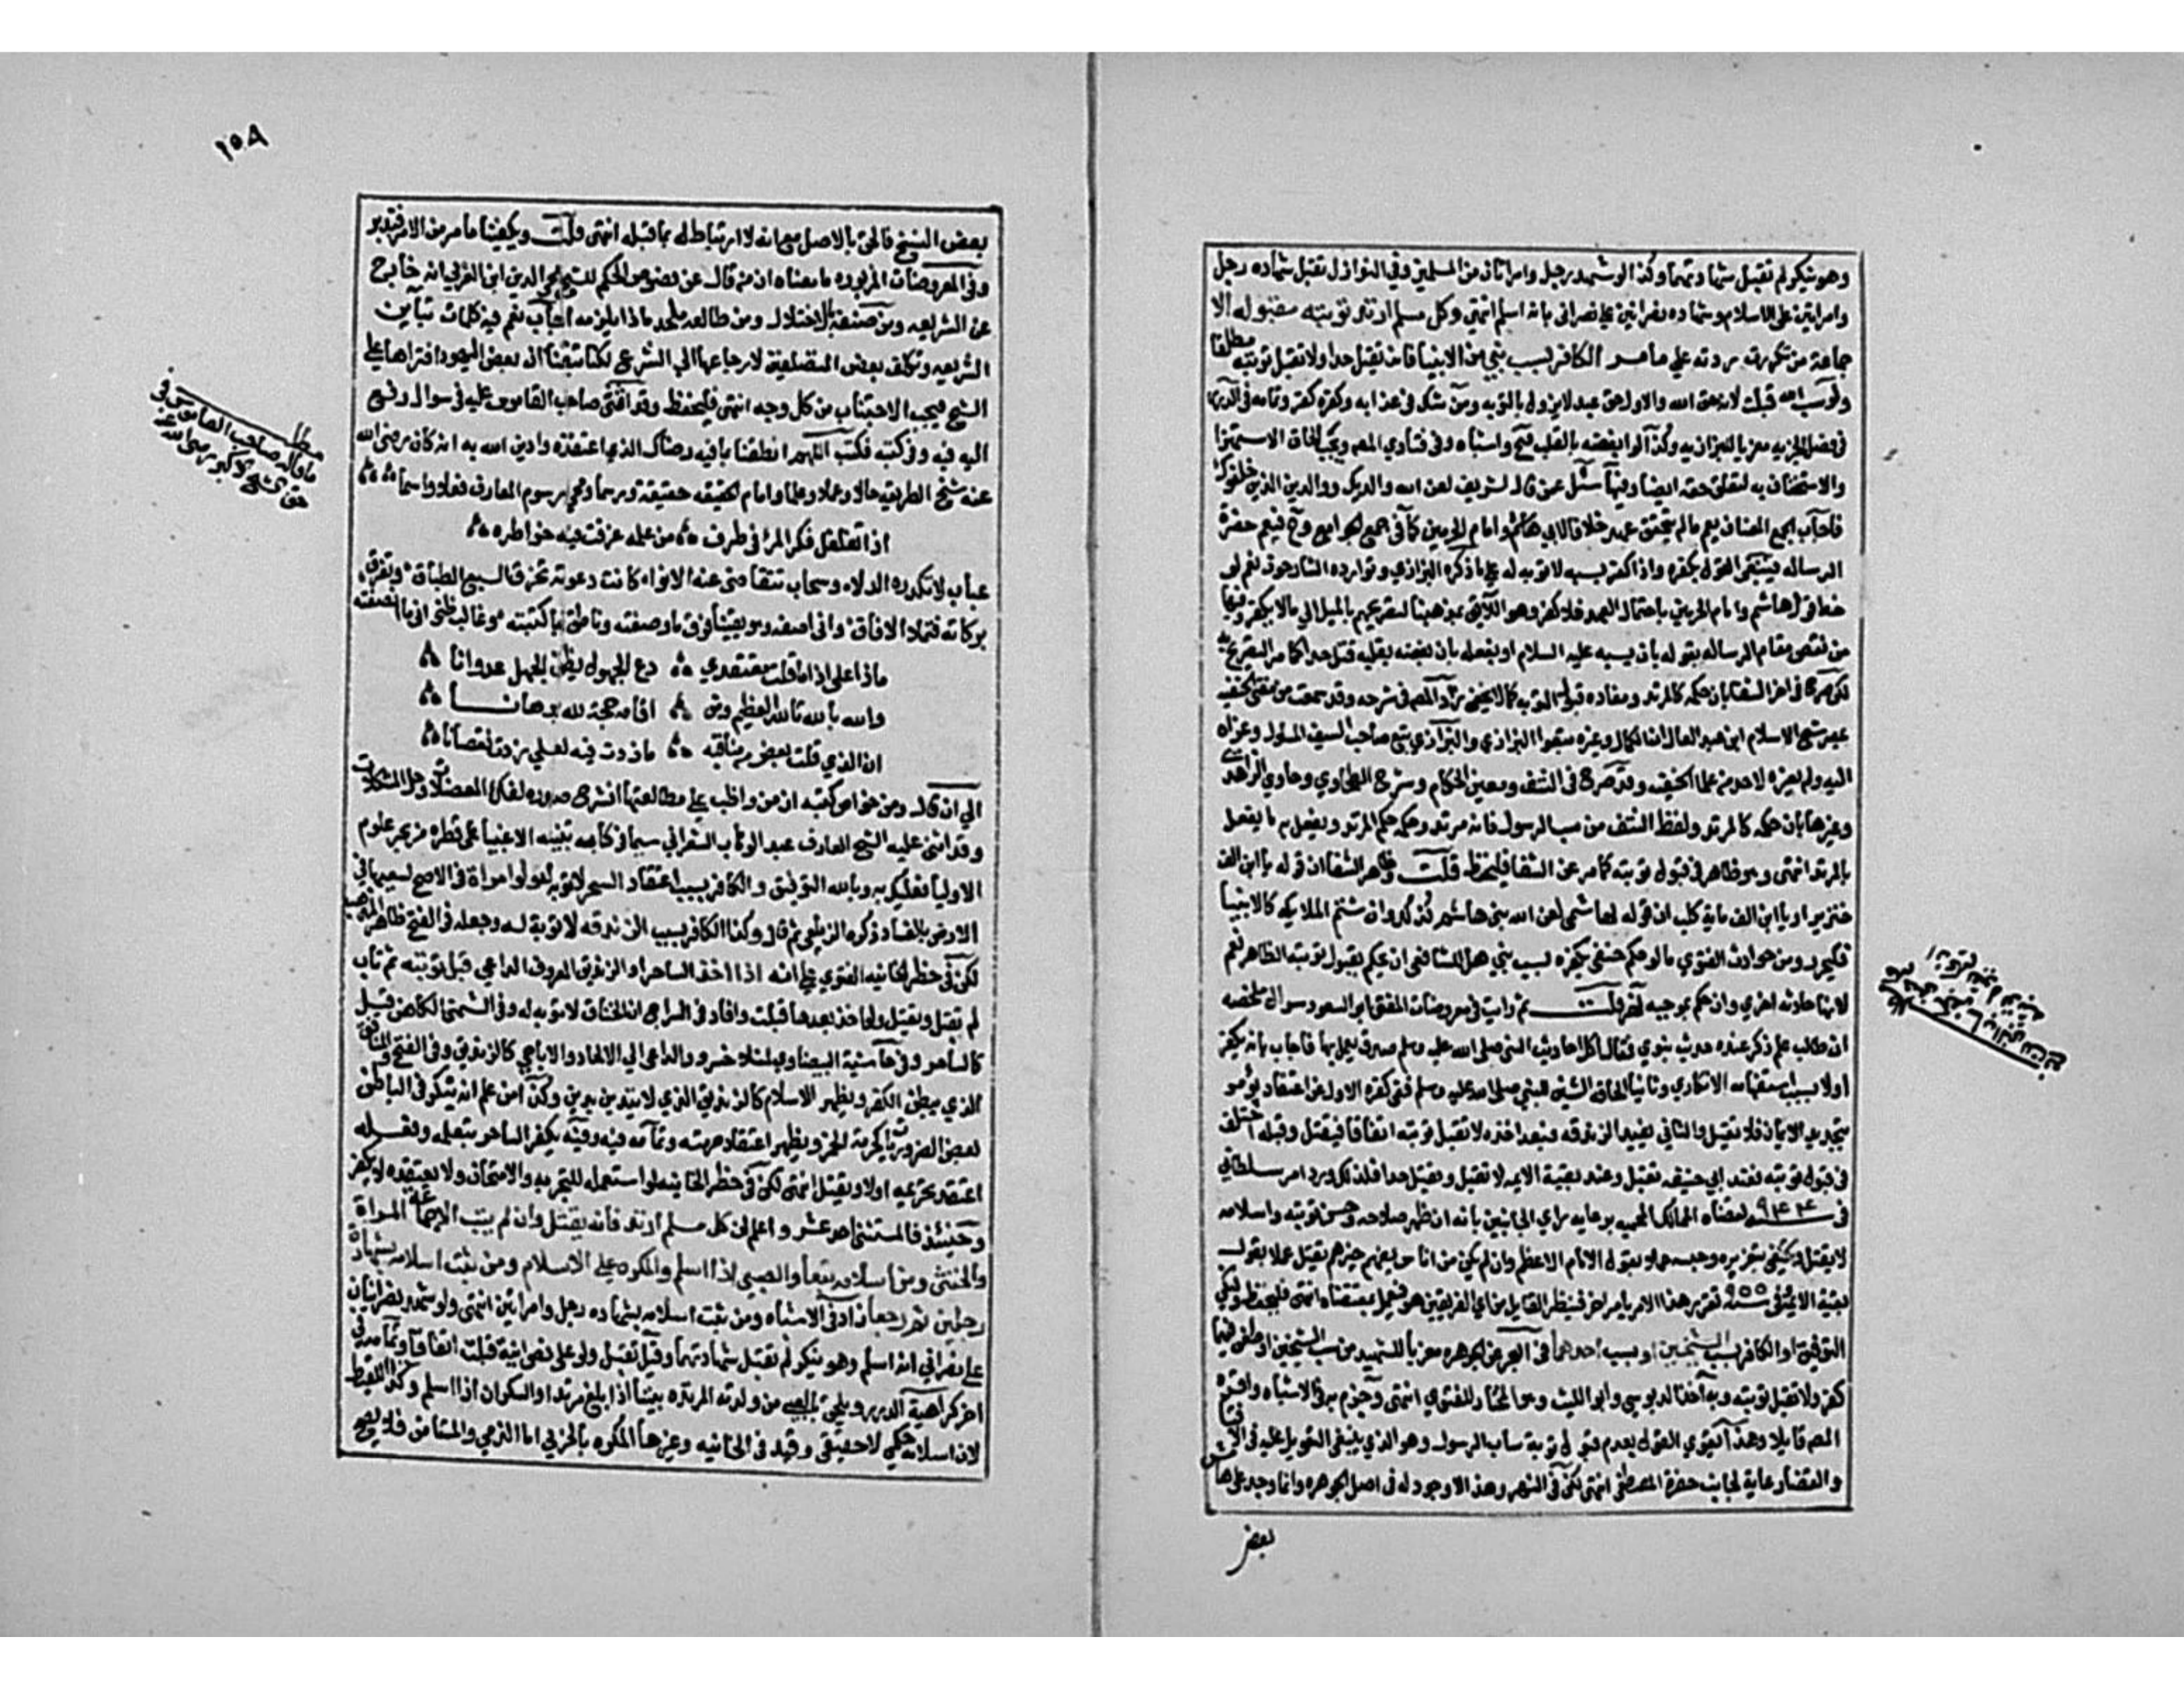 وهو ينكر لم تقبل شهادتهما وكذا لو شهد رجل وامراتان من المسلمين وفي النوازل تقبل شهاده رجل
وامراتين على الاسلام وشهاده نصرانيين على نصراني بانه اسلم انتهى وكل مسلم ارتد توبته مقبوله الا
جماعة من تكررت ردته على ما مر الكافر بسب نبي من الانبيا فانه يقتل حدا ولا تقبل توبته مطلقا
ولو سب الله قبلت لانه حق الله والاول حق عبد لا يزول بالتوبه ومن شك في عذابه وكفره كفر وتمامه في الدرر
في فصل الجزيه معزيا للبزازيه وكذا لو ابغضه بالقلب فتح واشباه وفي فتاوي المصـ ويجب الحاق الاستهزا
والاستخفاف به لتعلق حقه ايضا وفيها سئل عمن قال لشريف لعن الله والديك ووالدين الذين خلفوك
فاجاب الجمع المضاف يعم ما لم يتحقق عهد خلافا لابي هاشم وامام الحرمين كما في جمع الجوامع وح فيعم حضرة
الرساله فينبغي القول بكفره واذا كفر بسبه لا توبه له على ما ذكره البزازي وتوارده الشارحون نعم لو
لحظ قول هاشم وامام الحرمين باحتمال العهد فلا كفر وهو اللائق بمذهبنا لتصريحهم بالميل الى ما لا يكفر وفيها
من نقص مقام الرساله بقوله بان سبه عليه السلام او بفعله بان بغضه بقلبه قتل حدا كما مر التصريح به
لكن صرح في اخر الشفا بان حكمه كالمرتد ومفاده قبول التوبه كما لا يخفى زاد المصـ في شرحه وقد سمعت من مفتي الحنفيه
بمصر شيخ الاسلام ابن عبد العال ان الكمال وغيره تبعوا البزازي والبزازي تبع صاحب السيف المسلول وعزاه
اليه ولم يعزه لاحد من علما الحنفيه وقد صرح في النتف ومعين الحكام وشرح الطحاوي وحاوي الزاهدي
وغيرها بان حكمه كالمرتد ولفظ النتف من سب الرسول فانه مرتد وحكمه حكم المرتد ويفعل به ما يفعل
بالمرتد انتهى وهو ظاهر في قبول توبته كما مر عن الشفا فليحفظ قلت وظاهر الشفا ان قوله يا ابن الف
خنزير او يا ابن الف مايه كلب ان قوله لهاشمي لعن الله بني هاشم كذلك وان شتم الملايكه كالانبيا
فليحرر ومن حوادث الفتوي ما لو حكم حنفي بكفره بسب نبي هل للشافعي ان يحكم بقبول توبته الظاهر نعم
لانها حادثه اخري وان حكم بموجبه نهر قلت ثم رايت في معروضات المفتي ابو السعود سوال ملخصه
ان طالب علم ذكر عنده حديث نبوي فقال اكل احاديث النبي صلى الله عليه وسلم صدق يعمل بها فاجاب بانه يكفر
اولا بسبب استفهامه الانكاري وثانيا بالحاقه الشين للنبي صلى الله عليه وسلم ففي كفره الاول عن اعتقاد يؤمر
بتجديد الايمان فلا يقتل والثاني يفيد الزندقه فبعد اخذه لا تقبل توبته اتفاقا فيقتل وقبله اختلف
في قبول توبته فعند ابي حنيفه تقبل وعند بقية الايمه لا تقبل ويقتل حدا فلذلك ورد امر سلطاني
في سنه ٩٤٤ لقضاه الممالك المحميه برعايه راي الجانبين بانه ان ظهر صلاحه وحسن توبته واسلامه
لا يقتل ويكتفي بتعزيره وحبسه عملا بقول الامام الاعظم وان لم يكن من اناس يفهم خيرهم يقتل عملا بقول
بقية الايمه ثم في سنه ٩٥٥ تقرر هذا الامر بامر اخر فينظر القايل من اي الفريقين هو فيعمل بمقتضاه انتهى فليحفظ وليكن
التوفيق او الكافر بسب الشيخين او بسب احدهما في البحر عن الجوهره معزيا للشهيد من سب الشيخين او طعن فيهما
كفر ولا تقبل توبته وبه اخذ الدبوسي وابو الليث وهو المختار للفتوي انتهى وجزم به في الاشباه واقره
المصـ قايلا وهذا يقوي القول بعدم قبول توبة ساب الرسول وهو الذي ينبغي التعويل عليه في الافتا
والقضا رعاية لجانب حضرة المصطفى انتهى لكن في النهر وهذا لا وجود له في اصل الجوهره وانما وجد على هامش
بعض
١٥٨
بعض النسخ فالحق بالاصل مع انه لا ارتباط له بما قبله انتهى قلت ويكفينا ما مر من الامر فتدبر
وفي المعروضات المزبوره ما معناه ان من قال عن فصوص الحكم للشيخ محي الدين ابن العربي انه خارج
عن الشريعه وقد صنفه للاضلال ومن طالعه ملحد ماذا يلزمه اجاب نعم فيه كلمات تباين
الشريعه وتكلف بعض المتصلفين لارجاعها الي الشرع لكنا تيقنا ان بعض اليهود افتراها على
الشيخ فيجب الاحتياط من كل وجه انتهى فليحفظ وقد اثنى صاحب القاموس عليه في سوال رفع
اليه فيه وفي كتبه فكتب اللهم انطقنا بما فيه رضاك الذي اعتقده وادين الله به انه كان رضي الله
عنه شيخ الطريقه حالا وعلما وامام الحقيقه حقيقة ورسما ومحي رسوم المعارف فعلا واسما
اذا تغلغل فكر المرء في طرف من علمه غرقت فيه خواطره
عباب لا تكدره الدلاء وسحاب تتقاصى عنه الانواء كانت دعوته تخرق السبع الطباق وتفرق
بركاته فتملا الافاق واني اصفه وهو يقينا فوق ما وصفته وناطق بما كتبته وغالب ظني اني ما انصفته
ماذا على اذا ما قلت معتقدي دع الجهول يظن الجهل عدوانا
والله بالله تالله العظيم ومن اقامه حجة لله برهانا
ان الذي قلت بعض من مناقبه ما زدت فيه لعلي زدت نقصانا
الي ان قال ومن خواص كتبه ان من واظب على مطالعتها انشرح صدره لفك المعضلات وحل المشكلات
وقد اثنى عليه الشيخ العارف عبد الوهاب الشعراني سيما في كتابه تنبيه الاغبيا على قطره من بحر علوم
الاوليا فعليك به وبالله التوفيق والكافر بسبب اعتقاد السحر لا توبه له ولو امراة في الاصح لسعيها في
الارض بالفساد ذكره الزيلعي ثم قال وكذا الكافر بسبب الزندقه لا توبة له وجعله في الفتح ظاهر المذهب
لكن في حظر الخانيه الفتوي على انه اذا اخذ الساحر او الزنديق المعروف الداعي قبل توبته ثم تاب
لم تقبل ويقتل ولو اخذ بعدها قبلت وافاد في السراج ان الخناق لا توبه له وفي الشمني الكاهن قيل
كالساحر وفي حاشية البيضاوي لمنلا خسرو والداعي الي الالحاد والاباحي كالزنديق وفي الفتح والمنافق
الذي يبطن الكفر ويظهر الاسلام كالزنديق الذي لا يتدين بدين وكذا من علم انه ينكر في الباطن
بعض الضروريات كحرمة الخمر ويظهر اعتقاد حرمته وتمامه فيه وفيه يكفر الساحر بتعلمه وفعله
اعتقد تحريمه اولا ويقتل انتهى لكن في حظر الخانيه لو استعمله للتجربه والامتحان ولا يعتقده لا يكفر
وحينئذ فالمستثنى احد عشر واعلم ان كل مسلم ارتد فانه يقتل وان لم يتب الا جماعة المراة
والخنثى ومن اسلامه تبعا والصبي اذا اسلم والمكره على الاسلام ومن ثبت اسلامه بشهادة
رجلين ثم رجعا زاد في الاشباه ومن ثبت اسلامه بشهاده رجل وامراتين انتهى ولو شهد نصرانيان
على نصراني انه اسلم وهو ينكر لم تقبل شهادتهما وقيل تقبل ولو على نصرانية قبلت اتفاقا وتمامه في
اخر كراهية الدرر ويلحق بالصبي من ولدته المرتده بيننا اذا بلغ مرتدا والسكران اذا اسلم وكذا اللقيط
لان اسلامه حكمي لا حقيقي وقيد في الخانيه وغيرها المكره بالحربي اما الذمي والمستامن فلا يصح
مطلب
ما قاله صاحب القاموس في
حق الشيخ الاكبر رضي الله عنه